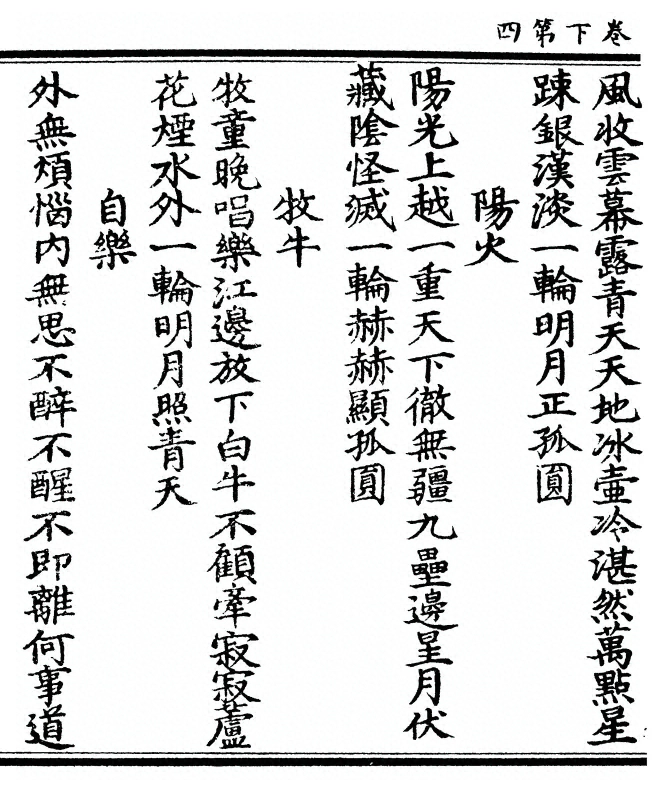 卷下第四
風收雲幕露青天天地冰壺冷湛然萬點星
踈銀漢淡一輪明月正孤圓
陽火
陽光上越一重天下徹無疆九壘邊星月伏
藏陰怪滅一輪赫赫顯孤圓
牧牛
牧童晚唱樂江邊放下白牛不顧牽寂寂蘆
花煙水外一輪明月照青天
自樂
外無煩惱內無思不醉不醒不即離何事道